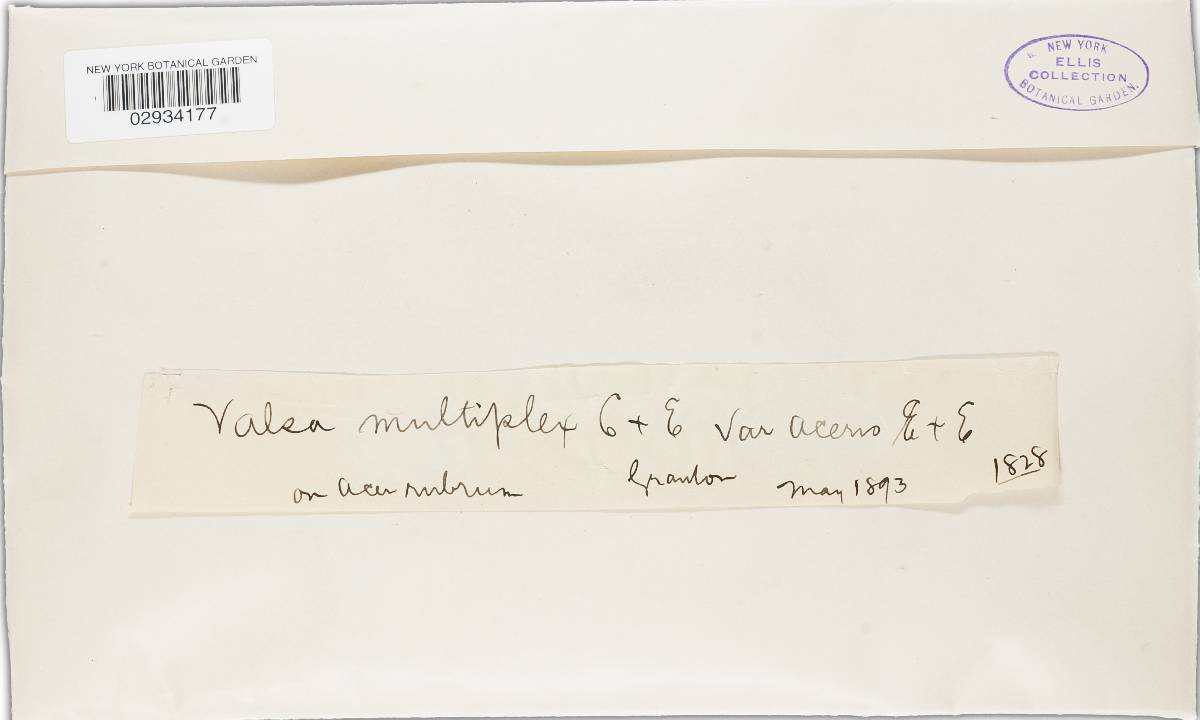 NEW YORK BOTANICAL GARDEN
02934177
NEW YORK
ELLIS
COLLECTION
BOTANICAL GARDEN.
Valsa multiplex C + E var aceris E + E
on Acer rubrum Granton May 1893 1828